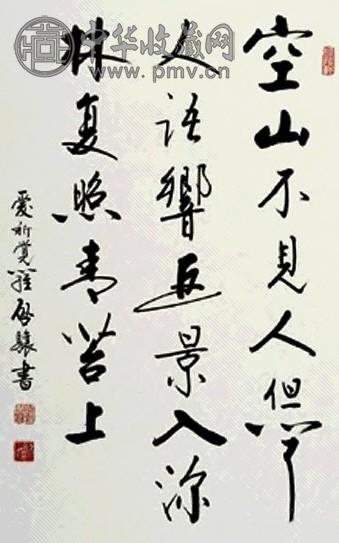 中华收藏网
www.pmv.cn
空山不見人但聞
人語響返景入深
林复照青苔上
愛新覺羅啓驤書